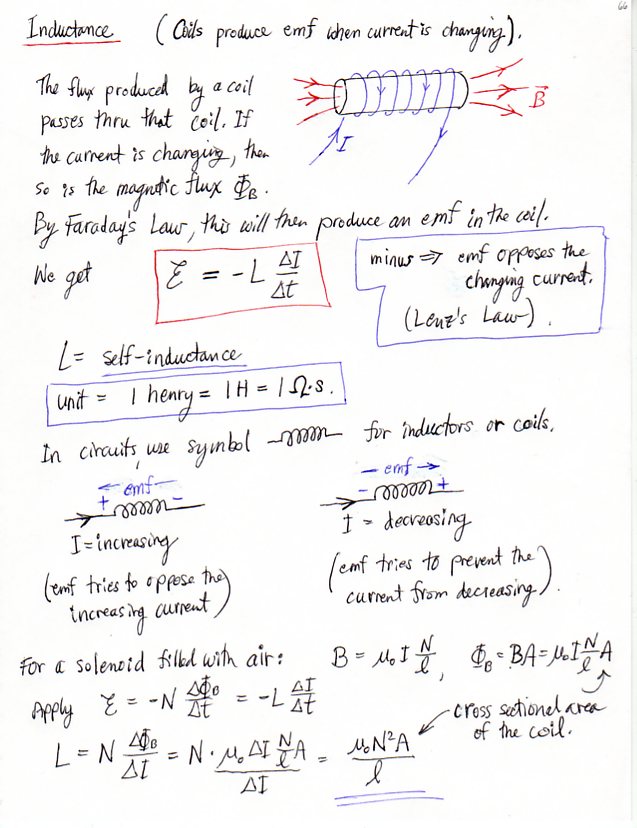 66
Inductance (Coils produce emf when current is changing).
The flux produced by a coil
passes thru that coil. If
the current is changing, then
so is the magnetic flux Φ_B.
I
B⃗
By Faraday's Law, this will then produce an emf in the coil.
We get ℰ = -L ΔI/Δt
minus ⇒ emf opposes the
changing current.
(Lenz's Law).
L = self-inductance
unit = 1 henry = 1H = 1Ω·s.
In circuits, use symbol for inductors or coils.
← emf -
+ -
I = increasing
(emf tries to oppose the
increasing current)
- emf →
- +
I = decreasing
(emf tries to prevent the
current from decreasing).
For a solenoid filled with air: B = μ₀I N/ℓ, Φ_B = BA = μ₀I N/ℓ A
Apply ℰ = -N ΔΦ_B/Δt = -L ΔI/Δt
cross sectional area
of the coil.
L = N ΔΦ_B/ΔI = N · μ₀ΔI N/ℓ A/ΔI = μ₀N²A/ℓ